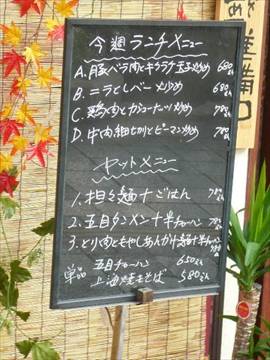 今週ランチメニュー
A. 豚バラ肉とキクラゲ玉子炒め 680えん
B. ニラとレバー炒め 680えん
C. 鶏肉とカシューナッツ炒め 780えん
D. 牛肉細切りとピーマン炒め 780えん
セットメニュー
1. 担々麺+ごはん
2. 五目タンメン+半チャーハン
3. とり肉ともやしあんかけ麺+半チャーハン
単品 五目チャーハン 650えん
上海焼きそば 580えん